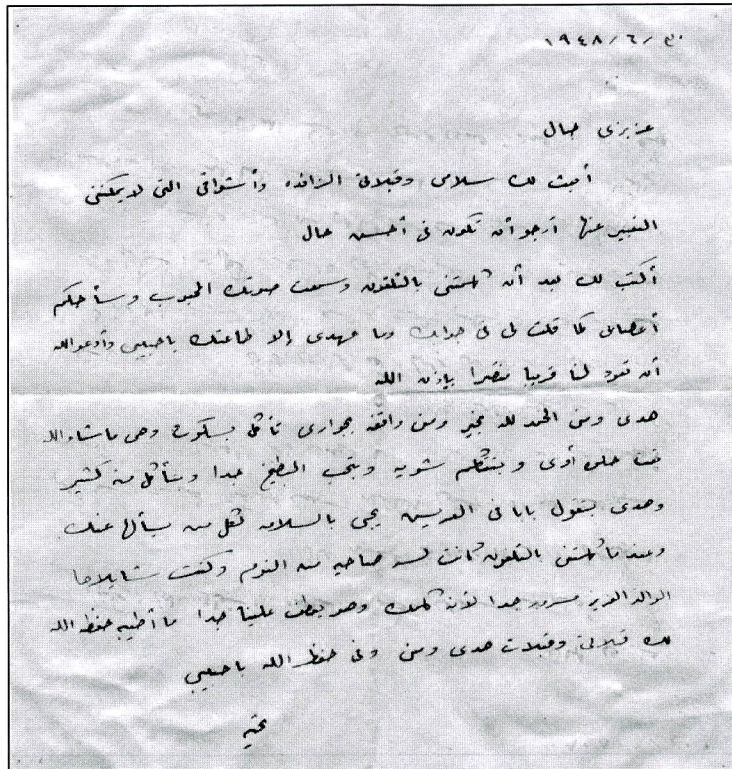 ٣٠/٦/١٩٤٨
عزيزى جمال
أبعث لك سلامى وقبلاتى الزائده وأشواقى التى لا يمكننى
التعبير عنها أرجو أن تكون فى أحسن حال
أكتب لك بعد أن كلمتنى بالتلفون وسمعت صوتك المحبوب وسأحكم
أعصابى كما قلت لى فى جوابك وما جهدى إلا طاعتك يا حبيبى وأدعو الله
أن تعود لنا قريبا منتصرا بإذن الله
هدى ومنى الحمد لله بخير ومنى واقفه بجوارى تأكل بسكوت وهى ما شاء الله
بقت حلوه أوى وبتتكلم شويه وبتحب البطيخ جدا وبتأكل منه كثير
وهدى بتقول بابا فى العريش يجى بالسلامه لكل من يسألها عنك
وعندما كلمتنى بالتلفون كانت لسه صاحيه من النوم وكنت شايلاها
الوالد العزيز مسرور جدا لأنه كلمك وهو يعطف علينا جدا ما أطيبه حفظه الله
لك قبلاتى وقبلات هدى ومنى وفى حفظ الله يا حبيبى
تحيه